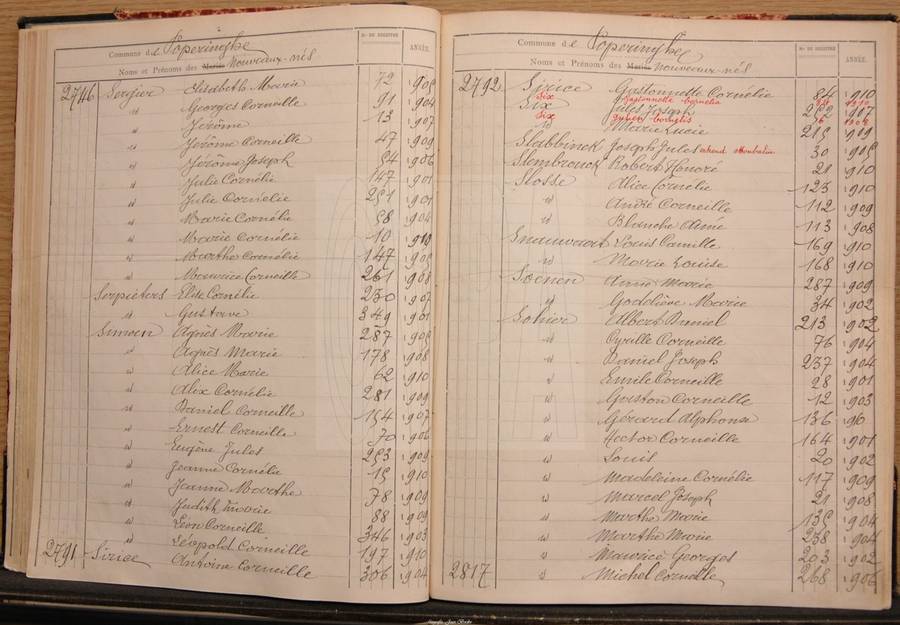 Commune de Poperinghe
Noms et Prénoms des Mariés Nouveaux-nés
Nos DE REGISTRE
ANNÉE.
2746 Sergier Elisabeth Marie 72 1905
id Georges Corneille 91 1904
id Jérôme 13 1907
id Jérôme Corneille 47 1909
id Jérôme Joseph 54 1906
id Julie Cornélie 147 1901
id Julie Cornélie 251 1901
id Marie Cornélie 58 1904
id Marie Cornélie 10 1910
id Marthe Cornélie 147 1905
id Maurice Corneille 261 1908
Serpieters Elise Cornélie 230 1907
id Gustave 349 1901
Simoen Agnès Marie 287 1905
id Agnès Marie 178 1908
id Alice Marie 62 1910
id Alix Cornélie 281 1909
id Daniel Corneille 154 1907
id Ernest Corneille 70 1906
id Eugène Jules 253 1909
id Jeanne Cornélie 15 1910
id Jeanne Marthe 78 1909
id Judith Marie 88 1909
id Léon Corneille 346 1903
id Léopold Corneille 197 1910
2791 Sirice Antoine Corneille 306 1904
Commune de Poperinghe
Noms et Prénoms des Mariés Nouveaux-nés
Nos DE REGISTRE
ANNÉE.
2792 Sirice Gastonnette Cornélie 84 1910
Six Gastonnette Cornelia 84 1910
Six Jules Joseph 252 1907
Six Cornelis
id Marie Lucie 215 1909
Slabbinck Joseph Jules 30 1905
Slembrouck Robert Honoré 21 1910
Slosse Alice Cornélie 123 1910
id André Corneille 112 1909
id Blanche Aimée 113 1908
Snauwaert Louis Camille 169 1910
id Marie Louise 168 1910
Soenen Anne Marie 287 1909
id Godelieve Marie 34 1902
Sohier Albert Daniel 213 1902
id Cyrille Corneille 76 1904
id Daniel Joseph 237 1904
id Emile Corneille 28 1901
id Gaston Corneille 12 1903
id Gérard Alphonse 136 1910
id Hector Corneille 164 1901
id Louis 20 1902
id Madeleine Cornélie 117 1909
id Marcel Joseph 21 1908
id Marthe Marie 135 1904
id Marthe Marie 238 1904
id Maurice Georges 203 1902
2817 id Michel Corneille 268 1906